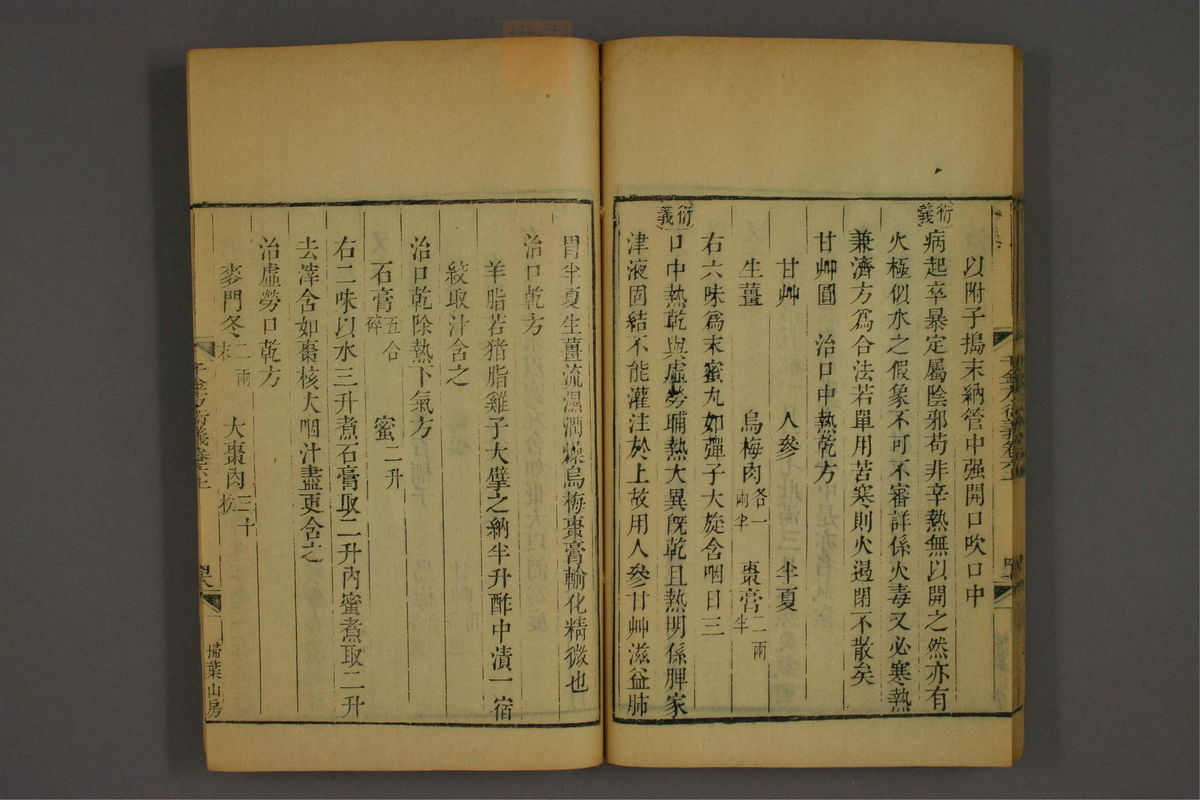 以附子搗末納管中强開口吹口中
衍義
病起卒暴定屬陰邪苟非辛熱無以開之然亦有
火極似水之假象不可不審詳係火毒又必寒熱
兼濟方爲合法若單用苦寒則火遏閉不散矣
甘艸圓　治口中熱乾方
甘艸　人參　半夏
生薑　烏梅肉各一兩半　棗膏二兩半
右六味爲末蜜丸如彈子大旋含咽日三
衍義
口中熱乾與虛勞晡熱大異旣乾且熱明係脾家
津液固結不能灌注於上故用人參甘艸滋益肺
胃半夏生薑流濕潤燥烏梅棗膏輸化精微也
治口乾方
羊脂若猪脂雞子大擘之納半升酢中漬一宿
絞取汁含之
治口乾除熱下氣方
石膏五合碎　蜜二升
右二味以水三升煮石膏取二升內蜜煮取二升
去滓含如棗核大咽汁盡更含之
治虛勞口乾方
麥門冬二兩末　大棗肉三十枚
千金方衍義卷六上
掃葉山房